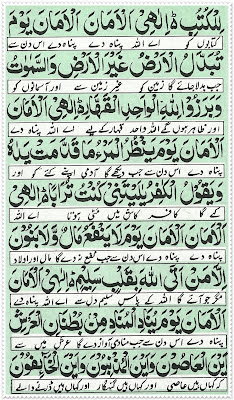 لِلْكُتُبِ ﴿﴾ اِلٰهِیْ الْاَمَانَ الْاَمَانَ یَوْمَ
کتابوں کو اے اللہ پناہ دے پناہ دے اس دن سے
تُبَدَّلُ الْاَرْضُ غَیْرَ الْاَرْضِ وَالسَّمٰوٰتُ
جب بدلا جائے گا زمین کو غیر زمین سے اور آسمانوں کو
وَبَرَزُوْا لِلّٰهِ الْوَاحِدِ الْقَهَّارِ اِلٰهِیْ الْاَمَانَ
اور ظاہر ہوں گے اللہ واحد قہار کے لیے اے اللہ پناہ دے
الْاَمَانَ یَوْمَ یَنْظُرُ الْمَرْءُ مَا قَدَّمَتْ یَدٰهُ
پناہ دے اس دن سے جب دیکھے گا آدمی اپنے کئے کو اور
وَیَقُوْلُ الْكٰفِرُ یٰلَیْتَنِیْ كُنْتُ تُرَابًا اِلٰهِیْ
کہے گا کافر کاش میں مٹی ہوتا اے اللہ
الْاَمَانَ الْاَمَانَ یَوْمَ لَا یَنْفَعُ مَالٌ وَّلَا بَنُوْنَ
پناہ دے پناہ دے اس دن سے جب نفع نہ دے گا مال اور اولاد
اِلَّا مَنْ اَتَی اللّٰهَ بِقَلْبٍ سَلِیْمٍ اِلٰهِیْ الْاَمَانَ
مگر جو آئے گا اللہ کے پاس سلیم دل سے اے اللہ پناہ دے
الْاَمَانَ یَوْمَ یُنَادِ الْمُنَادِ مِنْ بُطْنَانِ الْعَرْشِ
پناہ دے اس دن سے جب منادی آواز دے گا عرش میں سے
اَیْنَ الْعَاصُوْنَ وَاَیْنَ الْمُذْنِبُوْنَ وَاَیْنَ الْخَآئِفُوْنَ
کہ کہاں ہیں عاصی اور کہاں ہیں گنہگار اور کہاں ہیں ڈرنے والے